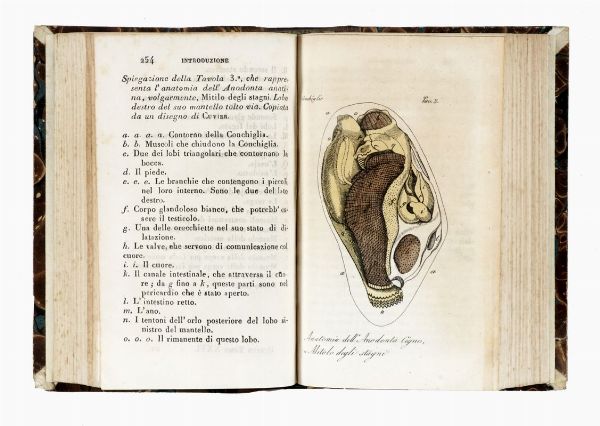 254 INTRODUZIONE
Spiegazione della Tavola 3.ª, che rappre-
senta l'anatomia dell'Anodonta anati-
na, volgarmente, Mitilo degli stagni. Lobo
destro del suo mantello tolto via. Copiata
da un disegno di CUVIER.
a. a. a. a. Contorno della Conchiglia.
b. b. Muscoli che chiudono la Conchiglia.
c. Due dei lobi triangolari che contornano la
bocca.
d. Il piede.
e. e. e. Le branchie che contengono i piccoli
nel loro interno. Sono le due del lato
destro.
f. Corpo glandoloso bianco, che potrebb' es-
sere il testicolo.
g. Una delle orecchiette nel suo stato di di-
latazione.
h. Le valve, che servono di comunicazione col
cuore.
i. i. Il cuore.
k. Il canale intestinale, che attraversa il cuo-
re; da g fino a k, queste parti sono nel
pericardio che è stato aperto.
l. L'intestino retto.
m. L'ano.
n. I tentoni dell'orlo posteriore del lobo si-
nistro del mantello.
o. o. o. Il rimanente di questo lobo.
Tav. 3.
Anatomia dell'Anodonta Cigno,
Mitolo degli stagni